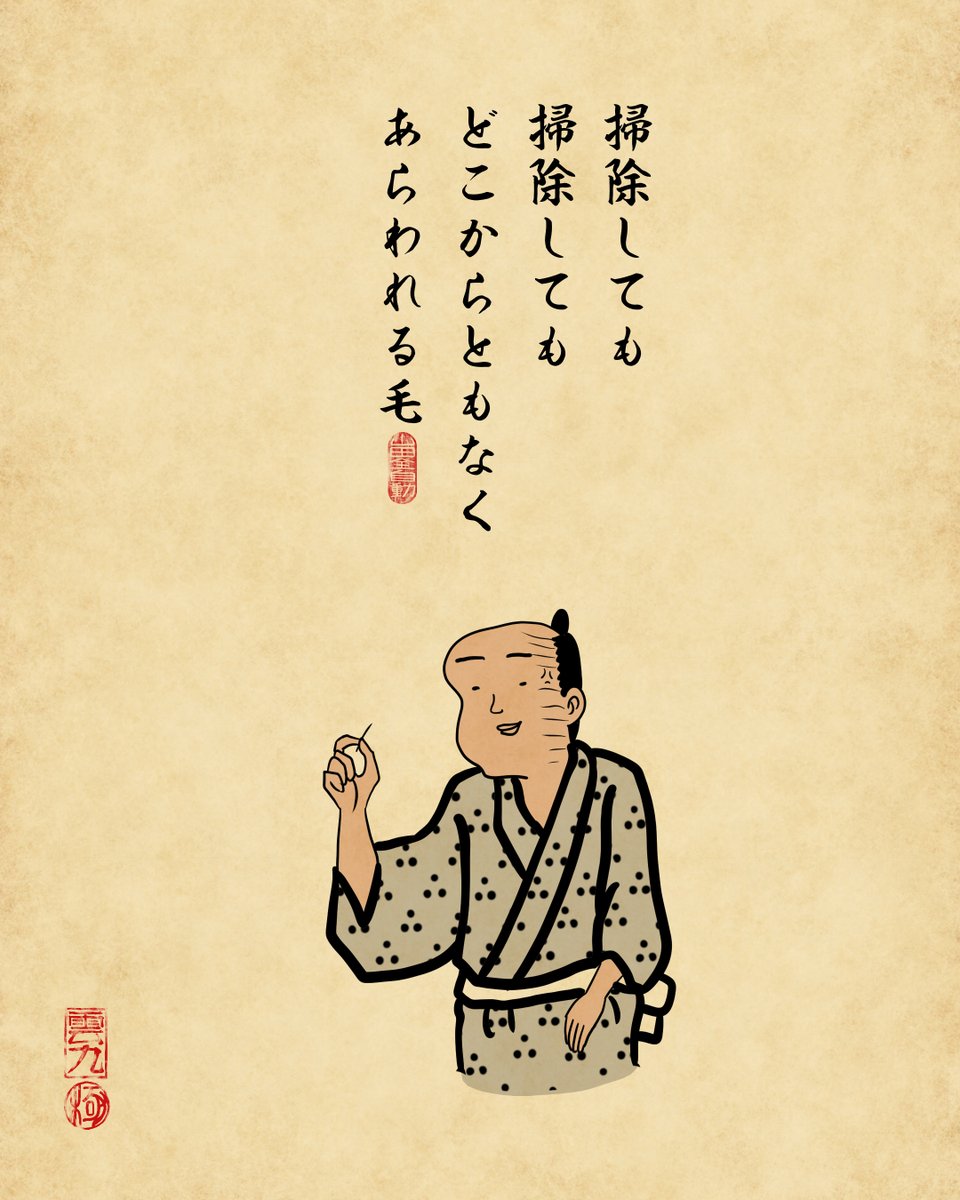 掃除しても
掃除しても
どこからともなく
あらわれる毛
雲九
極